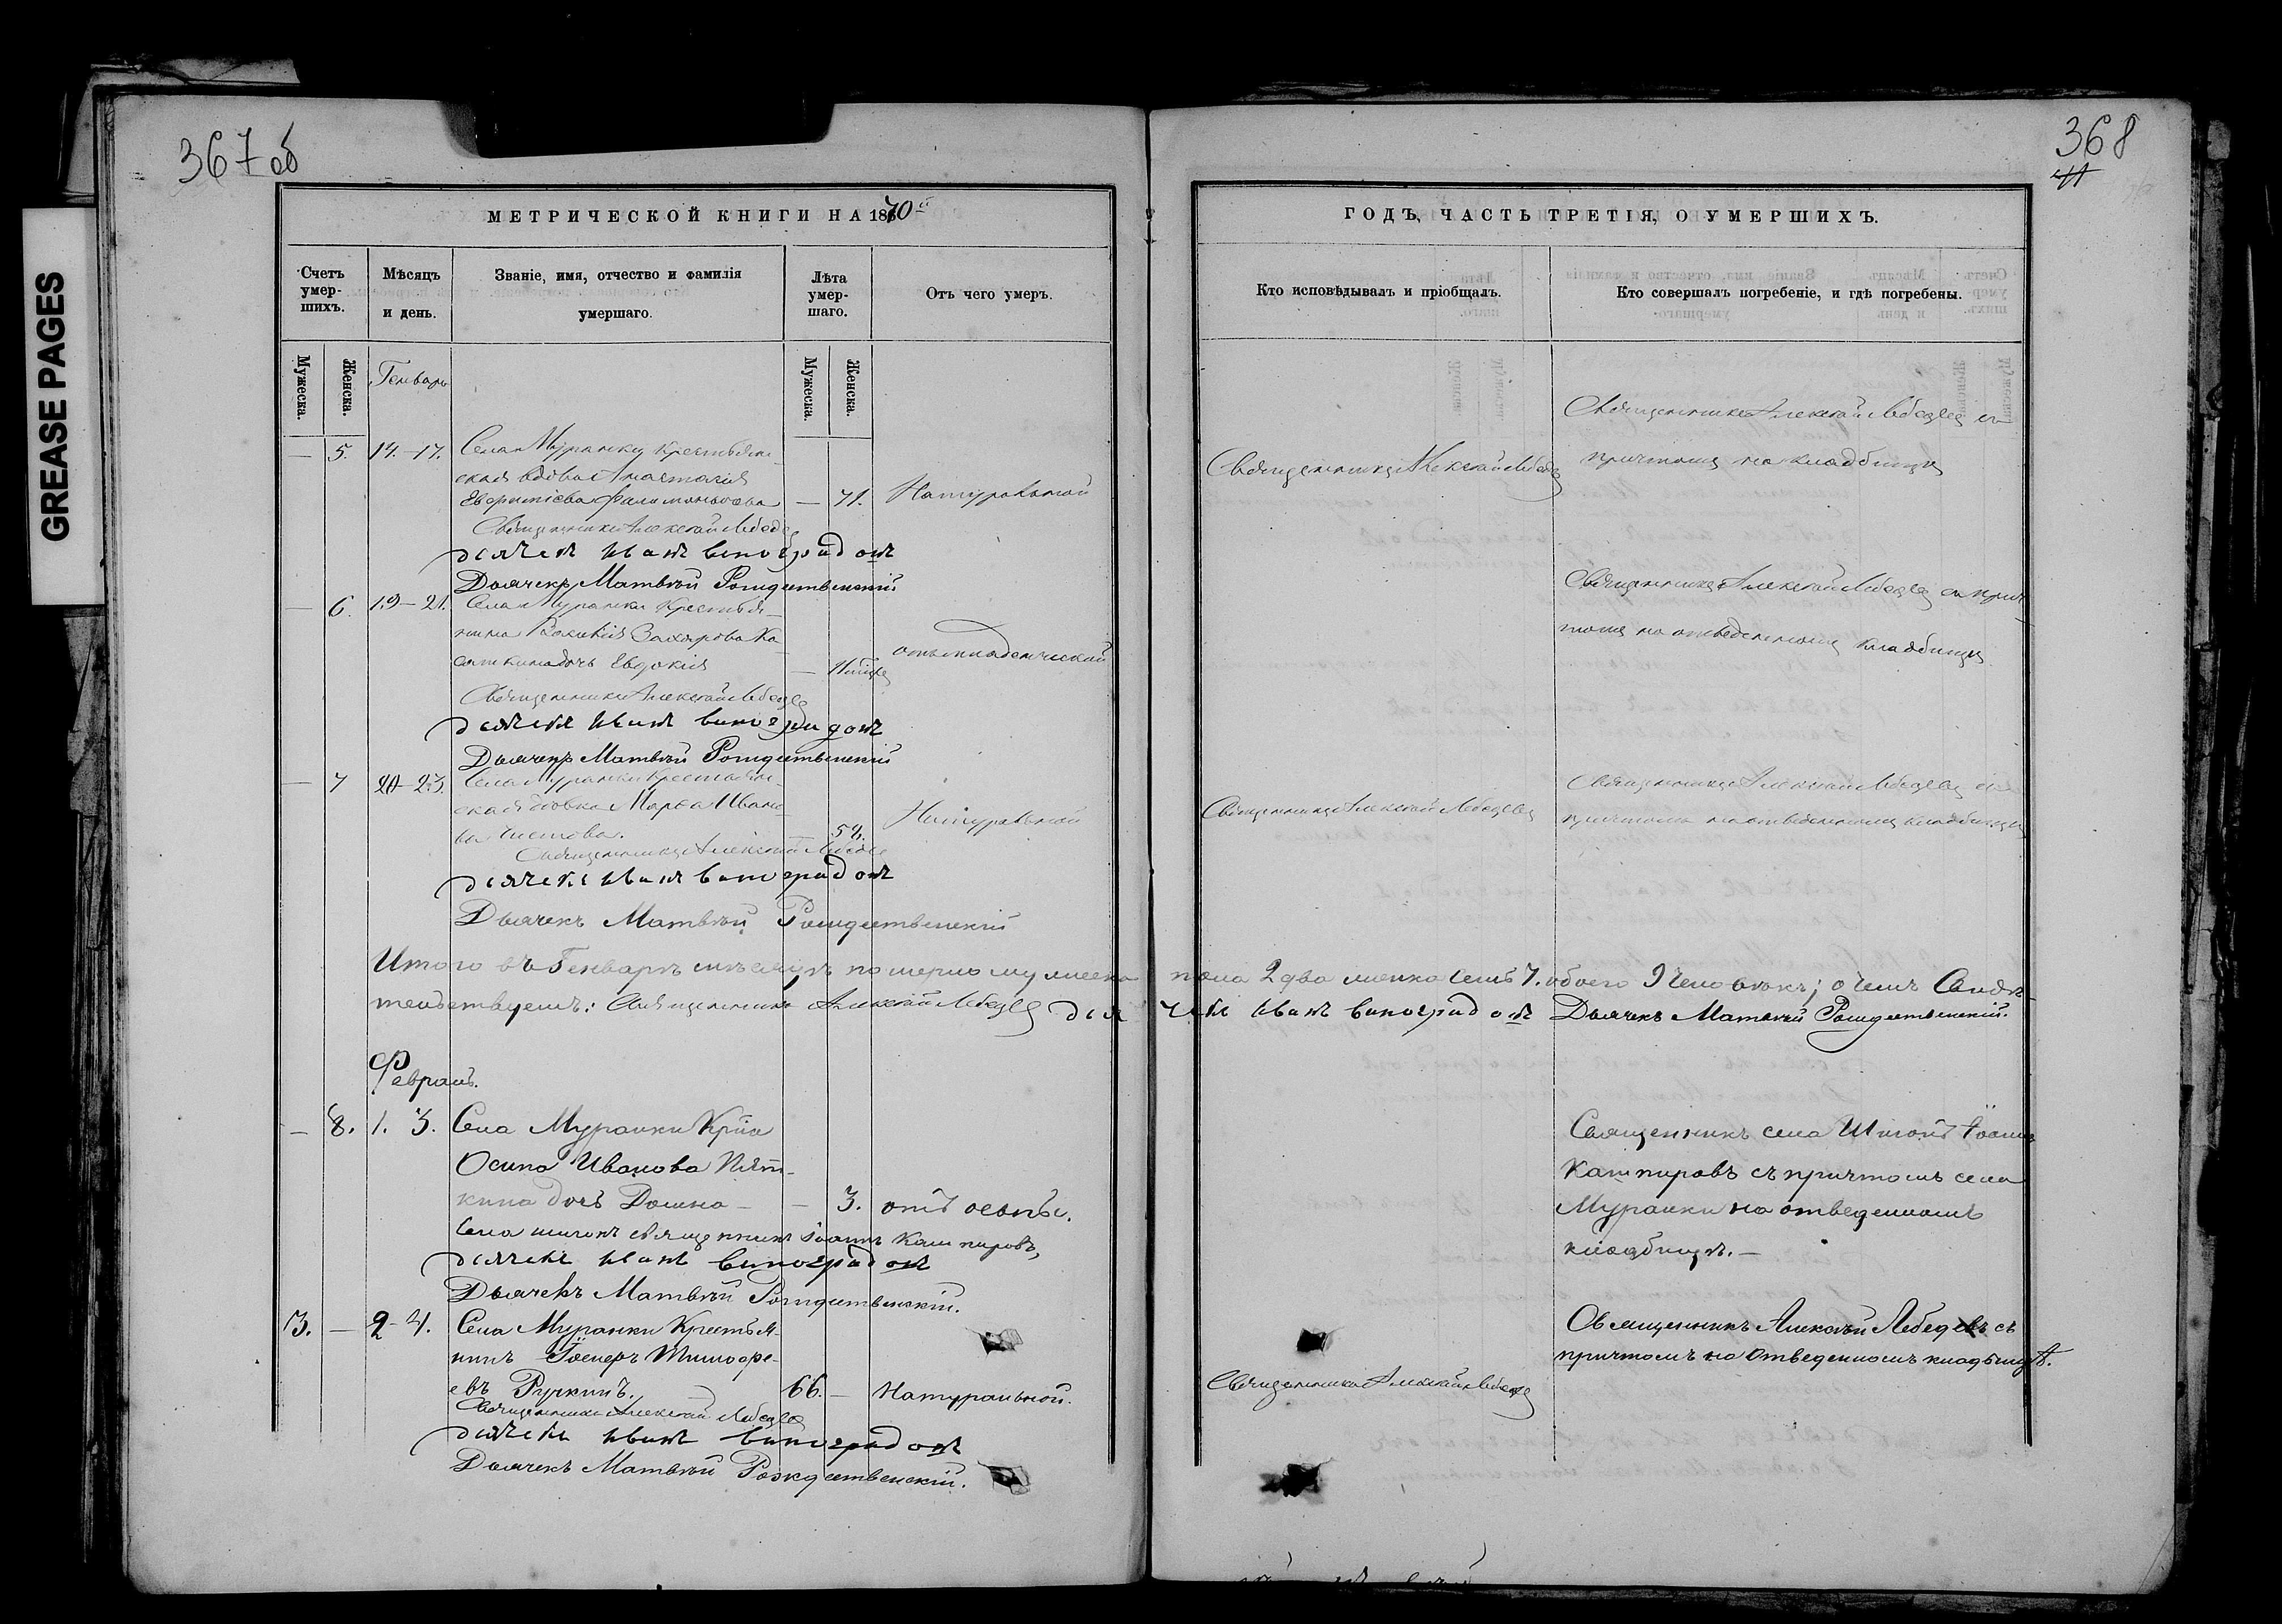 GREASE PAGES
367 об
368
МЕТРИЧЕСКОЙ КНИГИ НА 1870й
ГОДЪ, ЧАСТЬ ТРЕТІЯ, О УМЕРШИХЪ.
Счетъ умер-шихъ.
Мѣсяцъ и день.
Званіе, имя, отчество и фамилія умершаго.
Лѣта умер-шаго.
Отъ чего умеръ.
Кто исповѣдывалъ и пріобщалъ.
Кто совершалъ погребеніе, и гдѣ погребены.
Мужеска.
Женска.
Генварь
Мужеска.
Женска.
— 5. 14.-17. Села Муранки крестьян-
ская вдова Анастасія
— 71. Натуральной
Священникъ Алексѣй Лебедевъ
Священникъ Алексѣй Лебедевъ съ
причтомъ на кладбищѣ
Священникъ Алексѣй Лебедевъ
дьячекъ Иванъ Виноградовъ
Дьячекъ Матвѣй Рождественскій
— 6. 19-21. Села Муранки крестья-
нина Захарова Ка-
дочь Евдокія
отъ младенческой
Священникъ Алексѣй Лебедевъ съ прич-
томъ на отведенномъ кладбищѣ
Священникъ Алексѣй Лебедевъ
дьячекъ Иванъ Виноградовъ
Дьячекъ Матвѣй Рождественскій
— 7 20-23. Села Муранки крестьян-
ская дѣвка Марѳа Ивано-
ва
Натуральной
Священникъ Алексѣй Лебедевъ
Священникъ Алексѣй Лебедевъ съ
причтомъ на отведенномъ кладбищѣ
Священникъ Алексѣй Лебедевъ
дьячекъ Иванъ Виноградовъ
Дьячекъ Матвѣй Рождественскій
Итого въ Генварѣ мѣсяцѣ померло мужеска пола 2 два женска семь 7. обоего 9 человѣкъ; о чемъ Свидѣ-
тельствуемъ: Священникъ Алексѣй Лебедевъ дьячекъ Иванъ Виноградовъ Дьячекъ Матвѣй Рождественскій.
Февраль.
— 8. 1. 3. Села Муранки Кр-на
Осипа Иванова Пят-
кина дочь Домна — — 3. отъ оспы.
Священникъ села Шигонъ Іоаннъ
Кашпировъ съ причтомъ села
Муранки на отведенномъ
кладбищѣ.—
Села Шигонъ священникъ Іоаннъ Кашпировъ,
дьячекъ Иванъ Виноградовъ
Дьячекъ Матвѣй Рождественскій.
3. — 2-4. Села Муранки Крестья-
нинъ Тимофе-
евъ Ручкинъ. 66. — Натуральной.
Священникъ Алексѣй Лебедевъ
Священникъ Алексѣй Лебедевъ съ
причтомъ на отведенномъ кладбищѣ.
Священникъ Алексѣй Лебедевъ
дьячекъ Иванъ Виноградовъ
Дьячекъ Матвѣй Рождественскій.